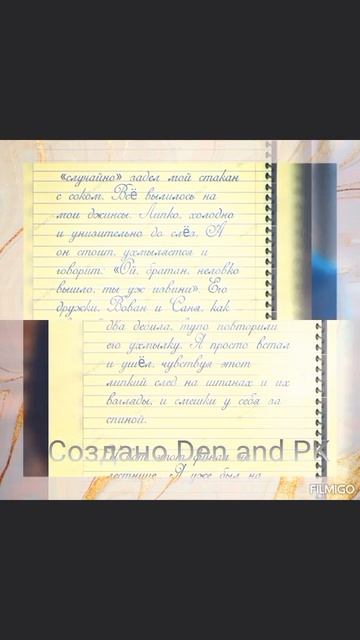 «случайно» задел мой стакан
с соком. Всё вылилось на
мои джинсы. Липко, холодно
и унизительно до слёз. А
он стоит, ухмыляется и
говорит: «Ой, братан, неловко
вышло, ты уж извини». Его
дружки, Вован и Саня, как
два дебила, тупо повторили
его ухмылку. Я просто встал
и ушёл, чувствуя этот
липкий след на штанах и их
взгляды, и смешки у себя за
спиной.
Создано Den and PK
лестнице. Я уже был на
FILMIGO